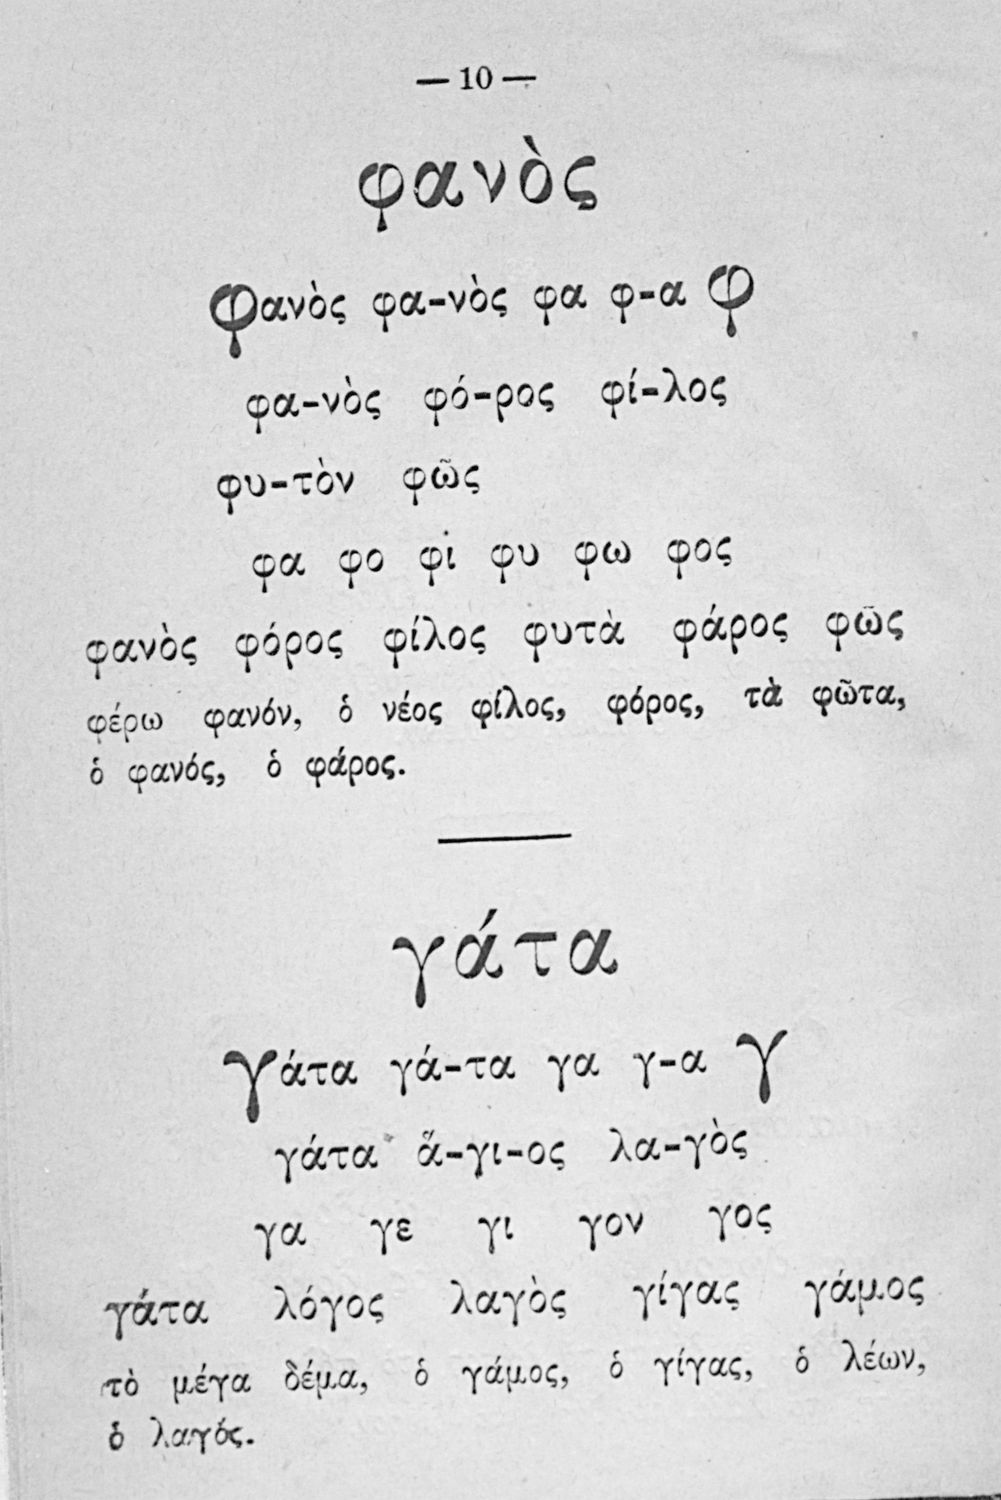 — 10 —
φανὸς
φανὸς φα-νὸς φα φ-α φ
φα-νὸς φό-ρος φί-λος
φυ-τὸν φῶς
φα φο φι φυ φω φος
φανὸς φόρος φίλος φυτὰ φάρος φῶς
φέρω φανόν, ὁ νέος φίλος, φόρος, τὰ φῶτα,
ὁ φανός, ὁ φάρος.
γάτα
γάτα γά-τα γα γ-α γ
γάτα ἅ-γι-ος λα-γὸς
γα γε γι γον γος
γάτα λόγος λαγὸς γίγας γάμος
τὸ μέγα δέμα, ὁ γάμος, ὁ γίγας, ὁ λέων,
ὁ λαγός.